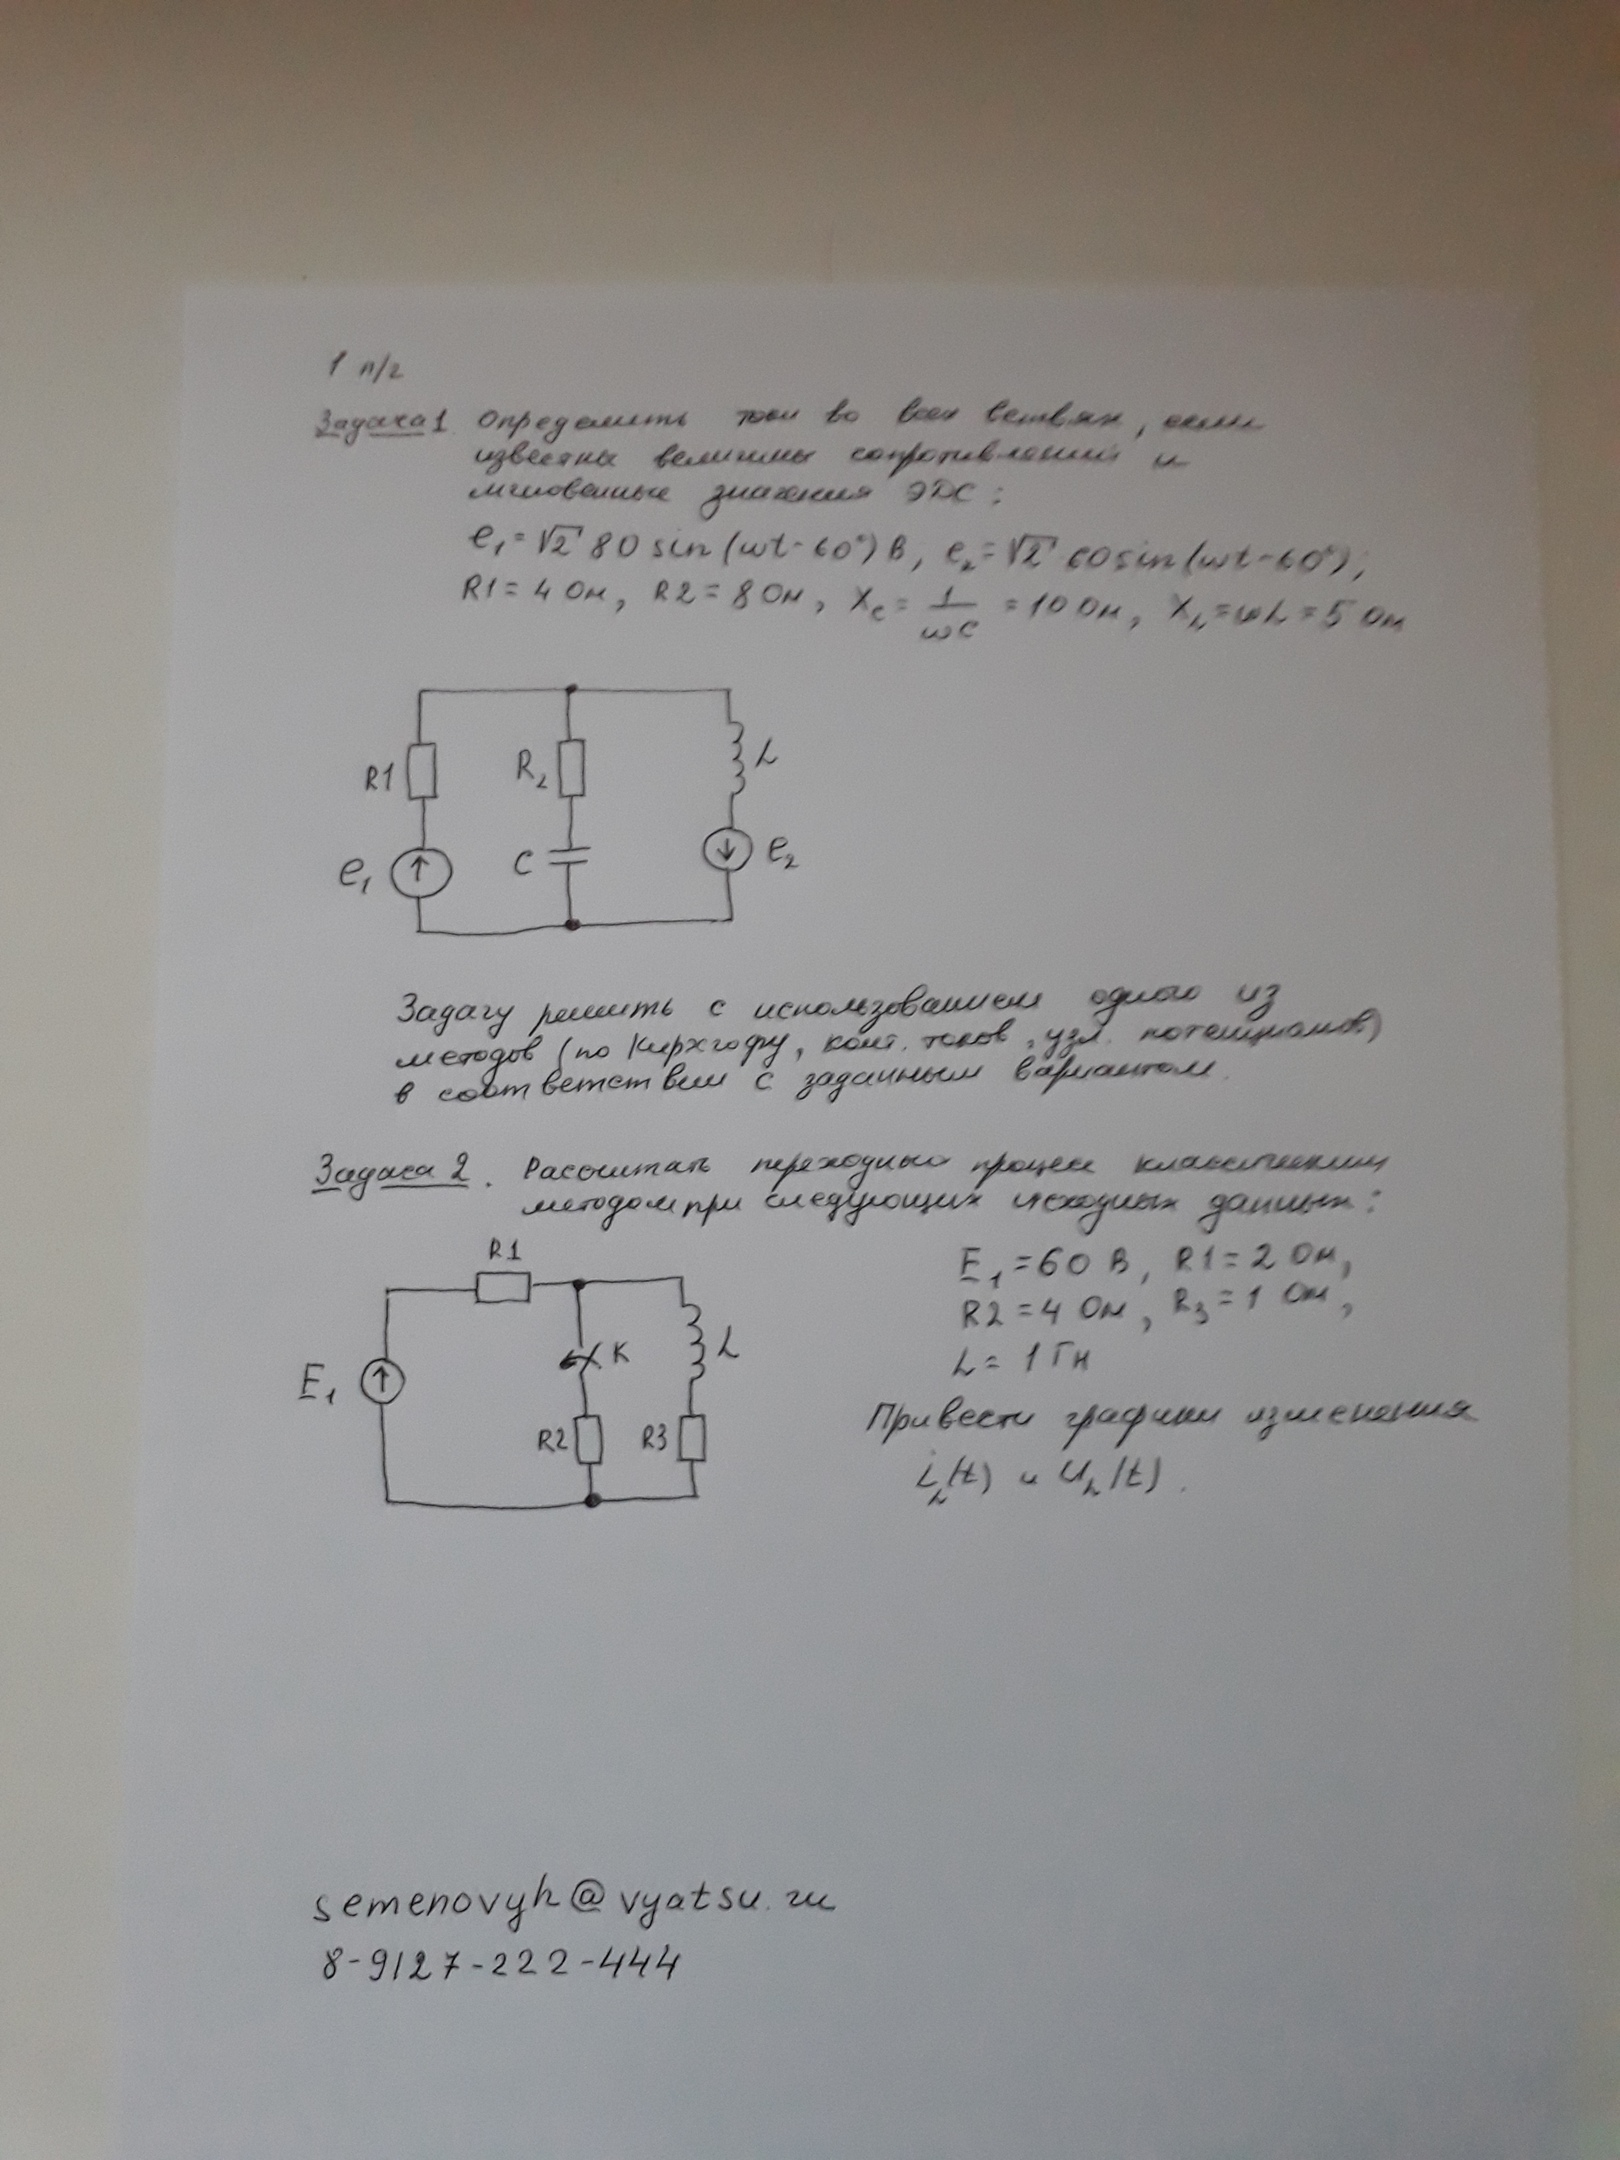 1 п/г
Задача 1. Определить токи во всех ветвях, если
известны величины сопротивлений и
мгновенные значения ЭДС:
e₁ = √2 80 sin(ωt-60°) В, e₂ = √2 60 sin(ωt-60°);
R1 = 4 Ом, R2 = 8 Ом, Xc = 1/ωC = 10 Ом, X_L = ωL = 5 Ом
R1
R₂
L
e₁
C
e₂
Задачу решить с использованием одного из
методов (по Кирхгофу, конт. токов, узл. потенциалов)
в соответствии с заданным вариантом.
Задача 2. Рассчитать переходный процесс классическим
методом при следующих исходных данных:
R1
E₁ = 60 В, R1 = 2 Ом,
R2 = 4 Ом, R₃ = 1 Ом,
L = 1 Гн
K
L
E₁
R2
R3
Привести графики изменения
i_L(t) и U_L(t).
semenovyh@vyatsu.ru
8-9127-222-444